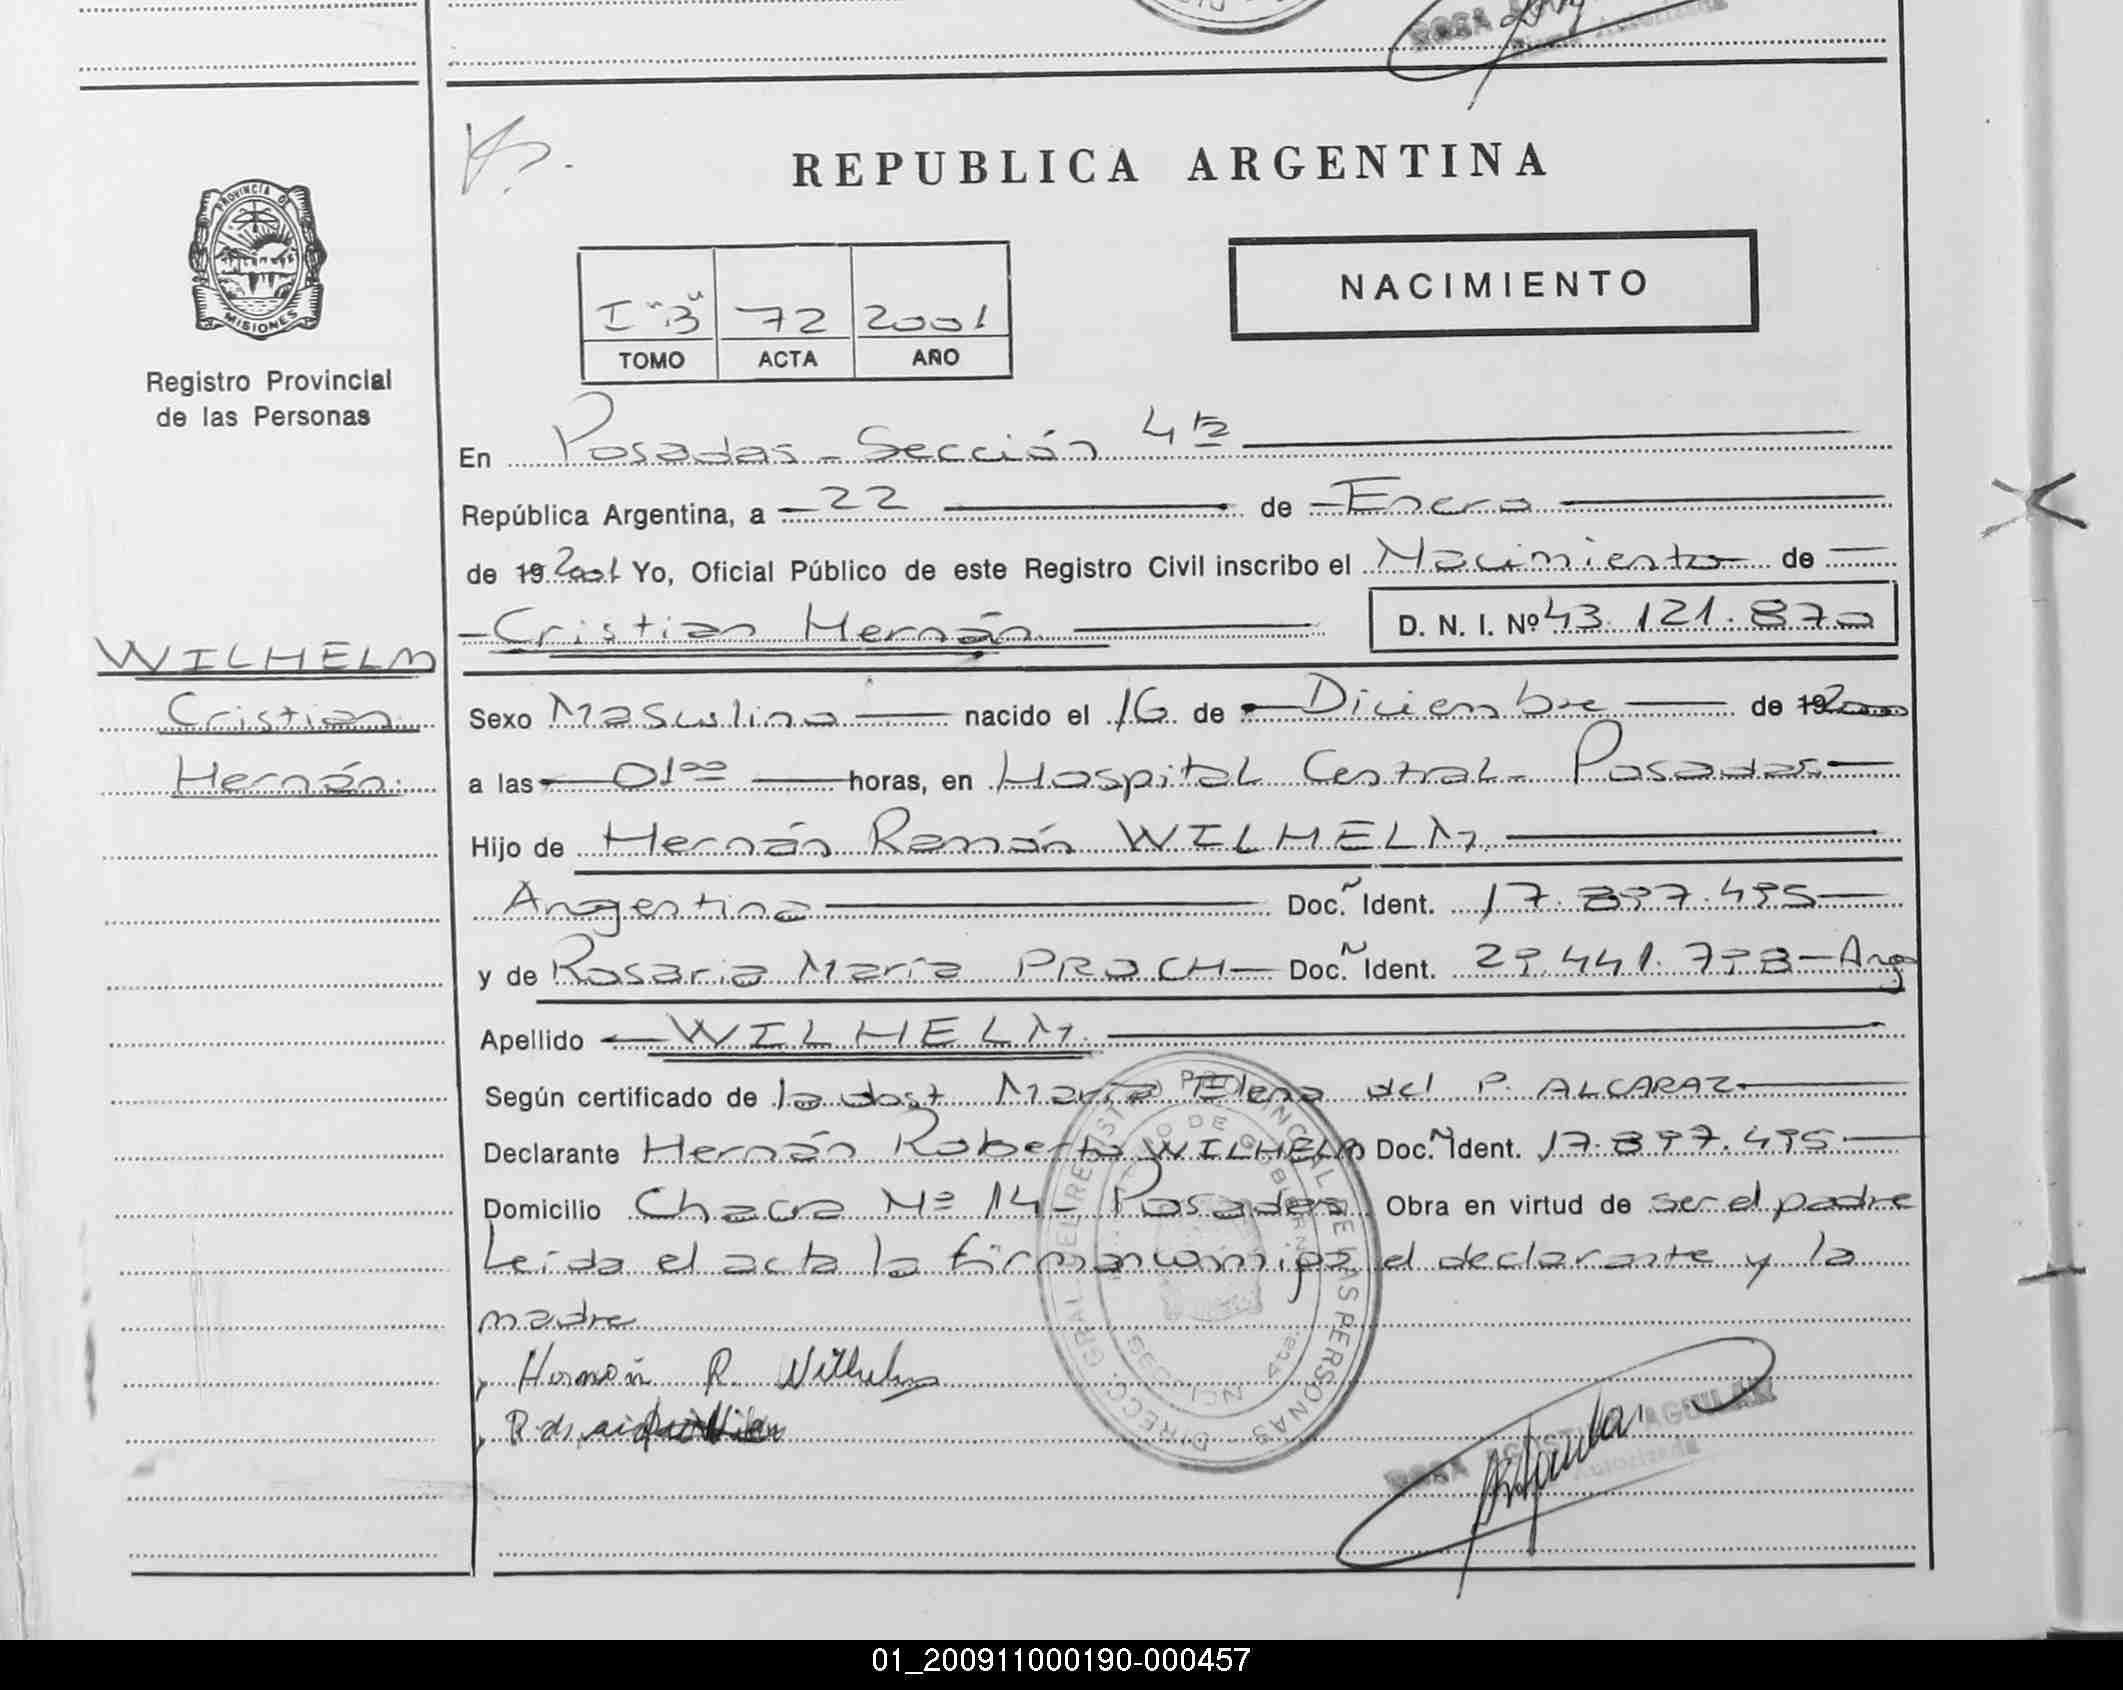 REPUBLICA ARGENTINA
PROVINCIA DE
MISIONES
Registro Provincial
de las Personas
NACIMIENTO
I "B" 72 2001
TOMO ACTA AÑO
En Posadas - Sección 4ta
República Argentina, a 22 de Enero
de 19 2001 Yo, Oficial Público de este Registro Civil inscribo el Nacimiento de
Cristian Hernán D. N. I. Nº 43.121.870
WILHELM
Cristian
Hernán
Sexo Masculino nacido el 16 de Diciembre de 19 2000
a las 01 00 horas, en Hospital Central - Posadas
Hijo de Hernán Ramón WILHELM
Argentino Doc. Ident. 17.897.495
y de Rosaria María PROCH Doc. Ident. 29.441.798 - Arg
Apellido WILHELM
Según certificado de la obst María Elena del P. ALCARAZ
Declarante Hernán Roberto WILHELM Doc. Ident. 17.897.495
Domicilio Chacra Nº 14 - Posadas Obra en virtud de ser el padre
Leida el acta la firman conmigo el declarante y la
madre
Hernán R. Wilhelm
DIRECC. GRAL DEL REGISTRO PROVINCIAL DE LAS PERSONAS
ROSA AGOSTINA AGUILAR
Autorizada
01_200911000190-000457